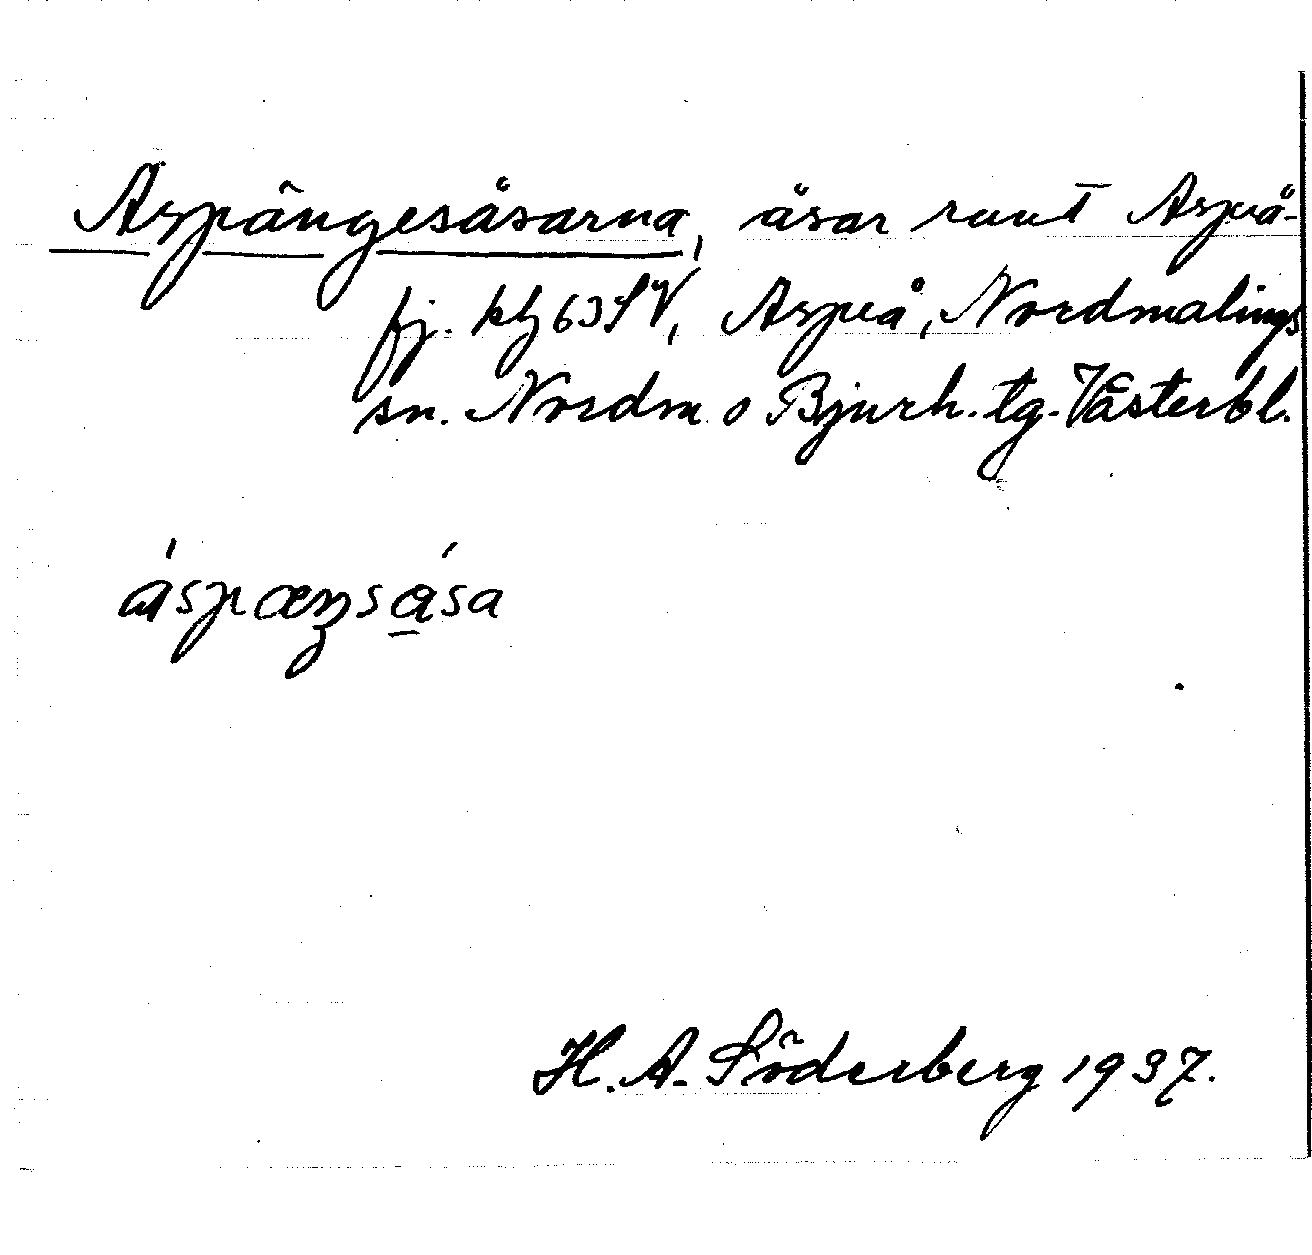 Aspängesåsarna, åsar runt Aspeå-
fj. kbl 63 SV, Aspeå, Nordmalings
sn. Nordm o Bjurh. tg. Västerbl.
áspæŋsása
H. A. Söderberg 1937.